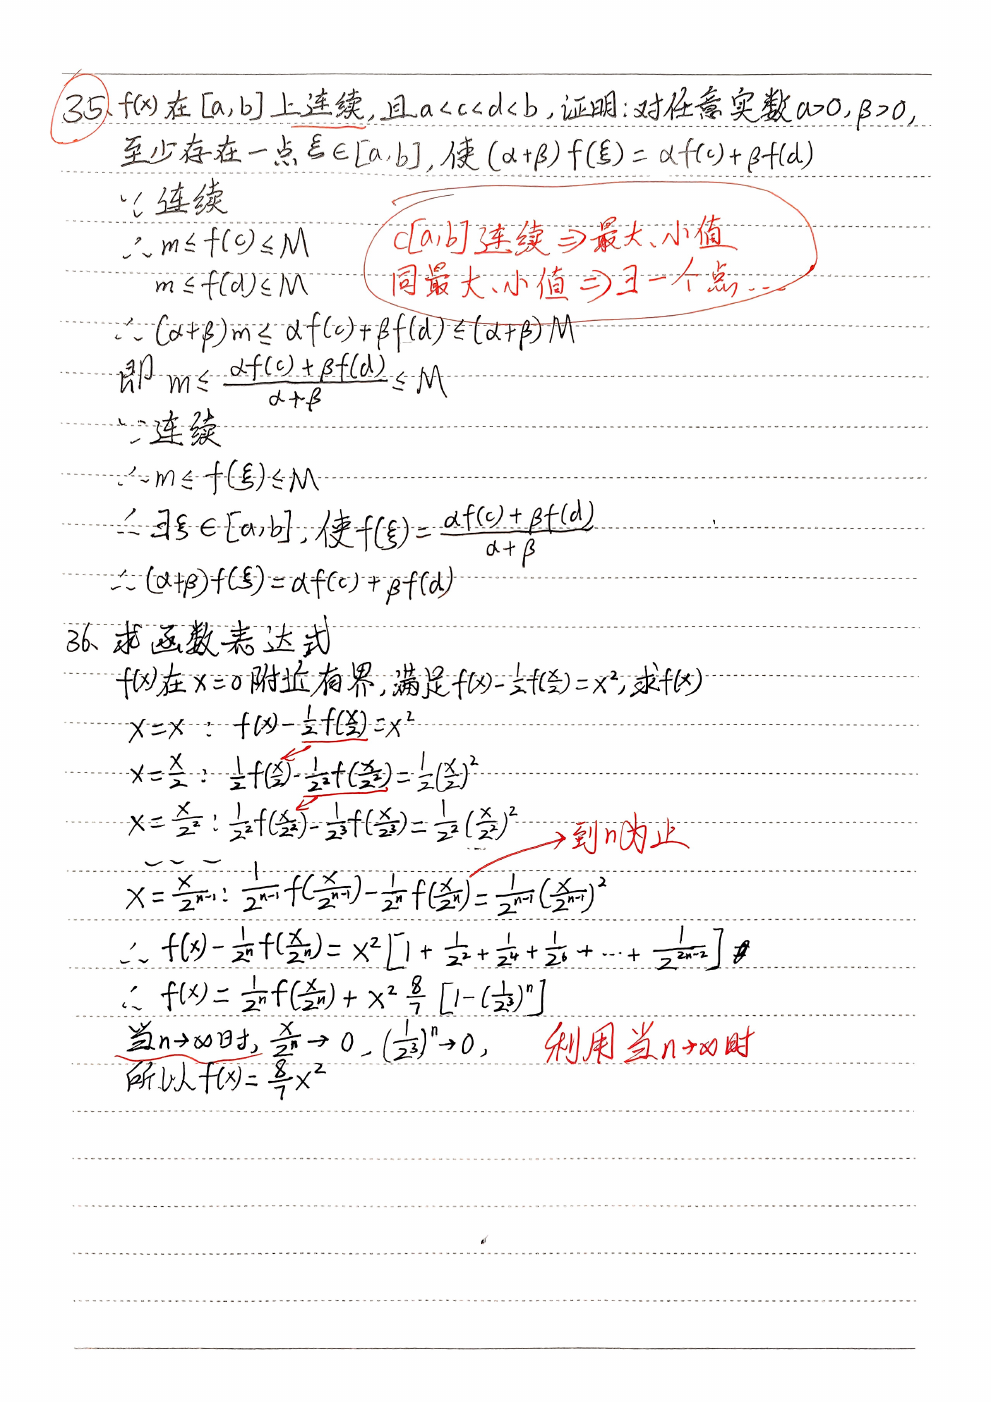 35、f(x)在[a,b]上连续,且a<c<d<b,证明:对任意实数α>0,β>0,
至少存在一点ξ∈[a,b],使(α+β)f(ξ)=αf(c)+βf(d)
∵连续
∴m≤f(c)≤M
m≤f(d)≤M
c[a,b]连续⇒最大、小值
同最大、小值⇒∃一个点...
∴(α+β)m≤αf(c)+βf(d)≤(α+β)M
即 m≤\frac{αf(c)+βf(d)}{α+β}≤M
∵连续
∴m≤f(ξ)≤M
∴∃ξ∈[a,b],使f(ξ)=\frac{αf(c)+βf(d)}{α+β}
∴(α+β)f(ξ)=αf(c)+βf(d)
36、求函数表达式
f(x)在x=0附近有界,满足f(x)-\frac{1}{2}f(\frac{x}{2})=x²,求f(x)
x=x : f(x)-\frac{1}{2}f(\frac{x}{2})=x²
x=\frac{x}{2} : \frac{1}{2}f(\frac{x}{2})-\frac{1}{2²}f(\frac{x}{2²})=\frac{1}{2}(\frac{x}{2})²
x=\frac{x}{2²} : \frac{1}{2²}f(\frac{x}{2²})-\frac{1}{2³}f(\frac{x}{2³})=\frac{1}{2²}(\frac{x}{2²})²
→到n为止
x=\frac{x}{2^{n-1}} : \frac{1}{2^{n-1}}f(\frac{x}{2^{n-1}})-\frac{1}{2^n}f(\frac{x}{2^n})=\frac{1}{2^{n-1}}(\frac{x}{2^{n-1}})²
∴ f(x)-\frac{1}{2^n}f(\frac{x}{2^n})=x²[1+\frac{1}{2²}+\frac{1}{2⁴}+\frac{1}{2⁶}+…+\frac{1}{2^{2n-2}}]
∴ f(x)=\frac{1}{2^n}f(\frac{x}{2^n})+x²\frac{8}{7}[1-(\frac{1}{2³})^n]
当n→∞时,\frac{x}{2^n}→0,(\frac{1}{2³})^n→0, 利用当n→∞时
所以f(x)=\frac{8}{7}x²